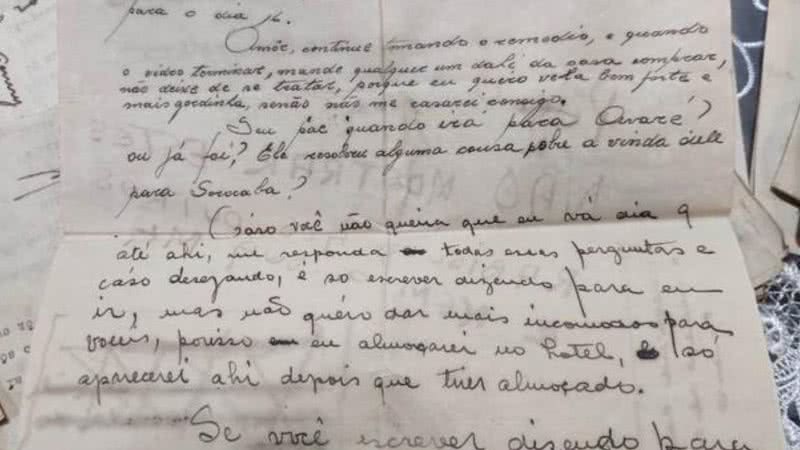 para o dia 16.
Amôr, continue tomando o remedio, e quando
o vidro terminar, mande qualquer um dali da casa comprar,
não deixe de se tratar, porque eu quero vela bem forte e
mais gordinha, senão não me casarei consigo.
Seu pae quando irá para Avaré?
ou já foi? Ele resolveu alguma cousa sobre a vinda dele
para Sorocaba?
Caso você não queira que eu vá dia 9
até ahi, me responda todas essas perguntas e
caso desejando, é so escrever dizendo para eu
ir, mas não quero dar mais incomodos para
vocês, porisso eu almoçarei no hotel, só
aparecerei ahi depois que tiver almoçado.
Se você escrever dizendo para